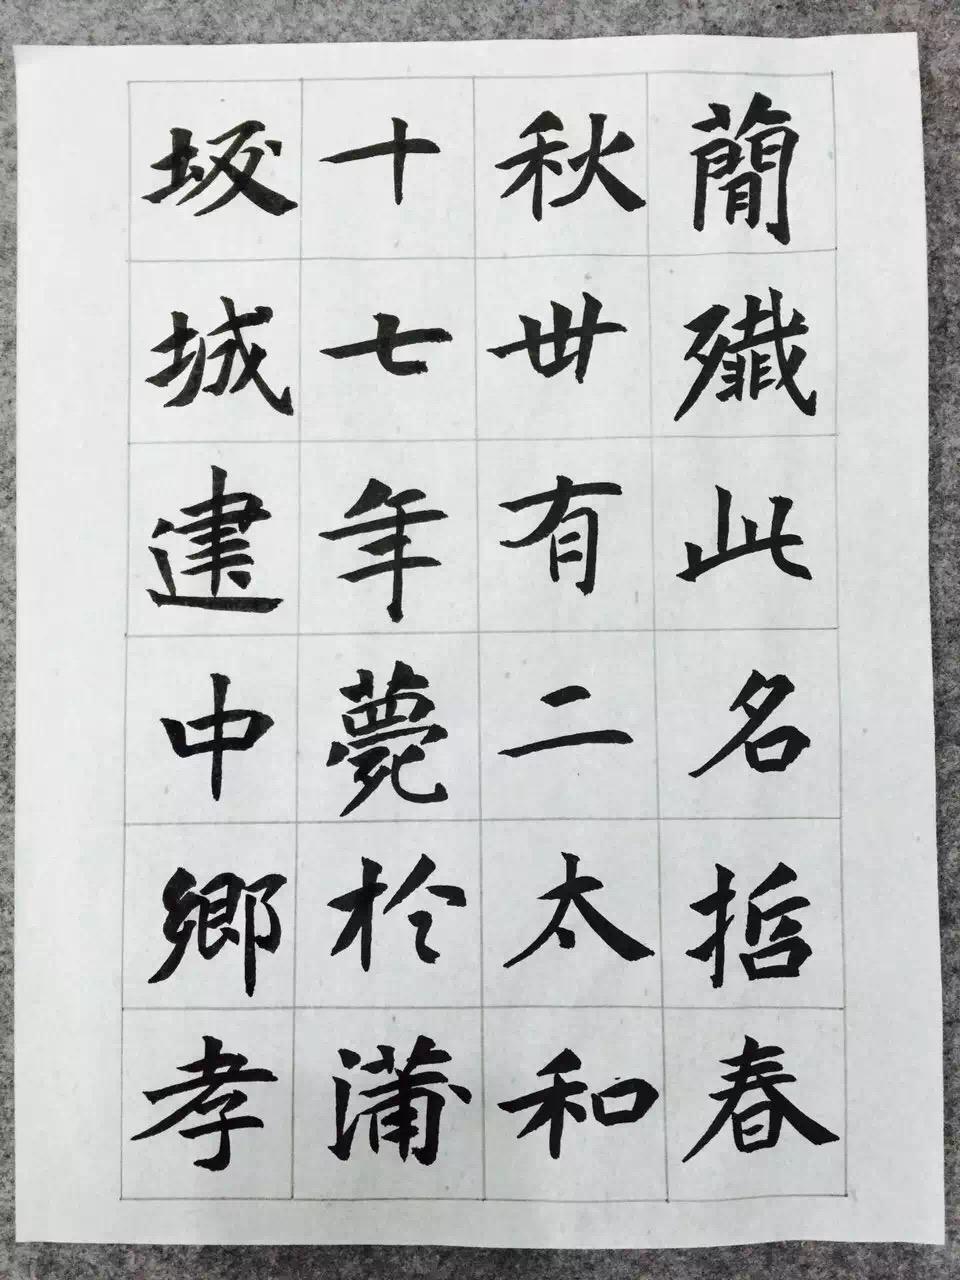 簡殲此名哲春
秋卅有二太和
十七年薨於蒲
坂城建中鄉孝